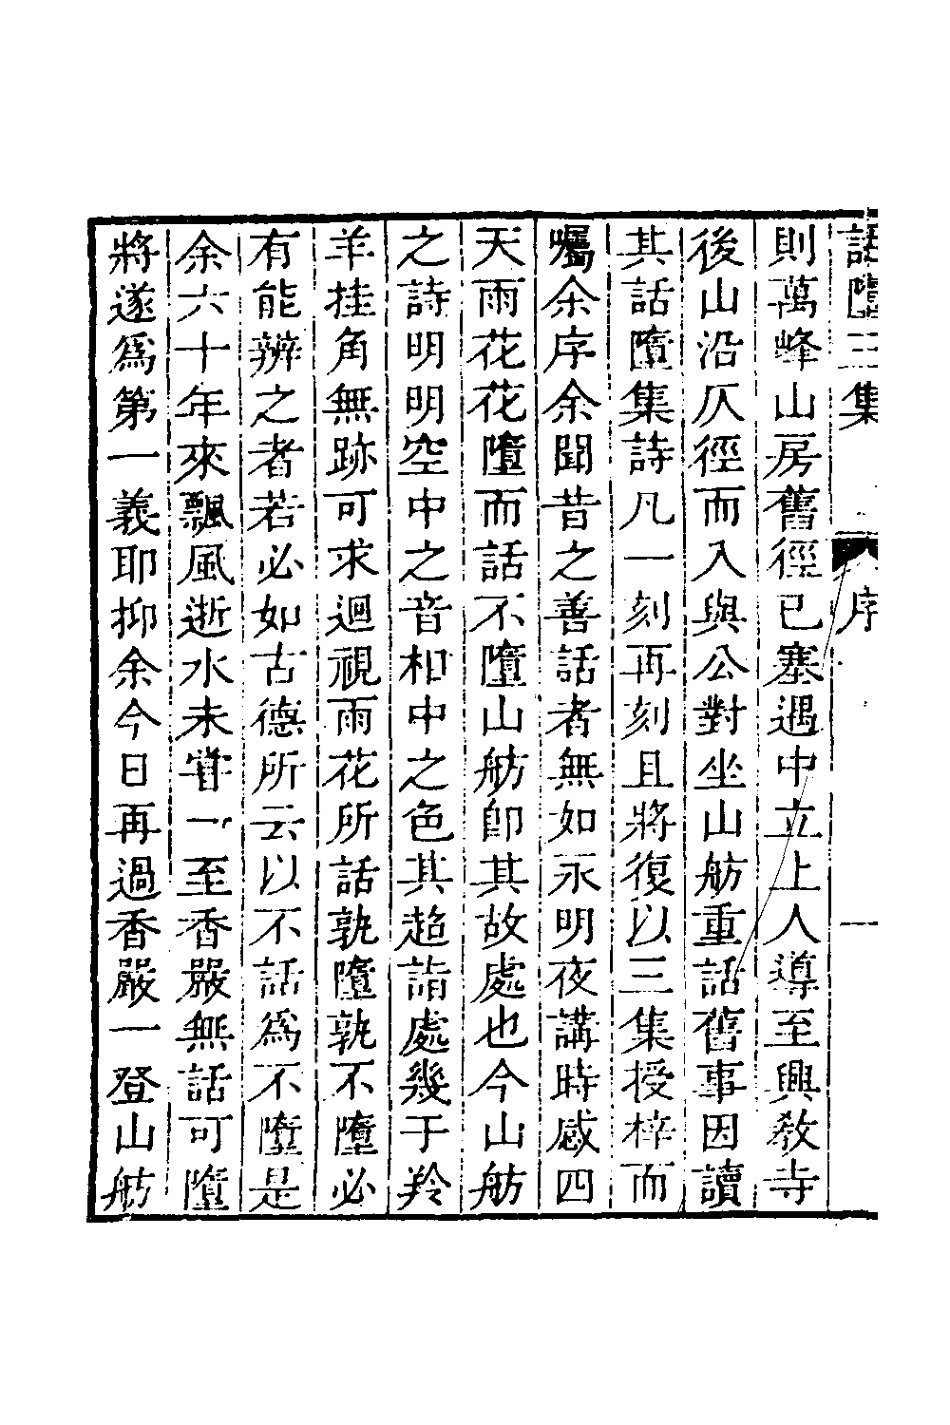 話墮三集 序 一
則萬峰山房舊徑已塞遇中立上人導至興敎寺
後山沿仄徑而入與公對坐山舫重話舊事因讀
其話墮集詩凡一刻再刻且將復以三集授梓而
囑余序余聞昔之善話者無如永明夜講時感四
天雨花花墮而話不墮山舫卽其故處也今山舫
之詩明明空中之音相中之色其趨詣處幾于羚
羊挂角無跡可求迴視雨花所話孰墮孰不墮必
有能辨之者若必如古德所云以不話爲不墮是
余六十年來飄風逝水未嘗一至香嚴無話可墮
將遂爲第一義耶抑余今日再過香嚴一登山舫